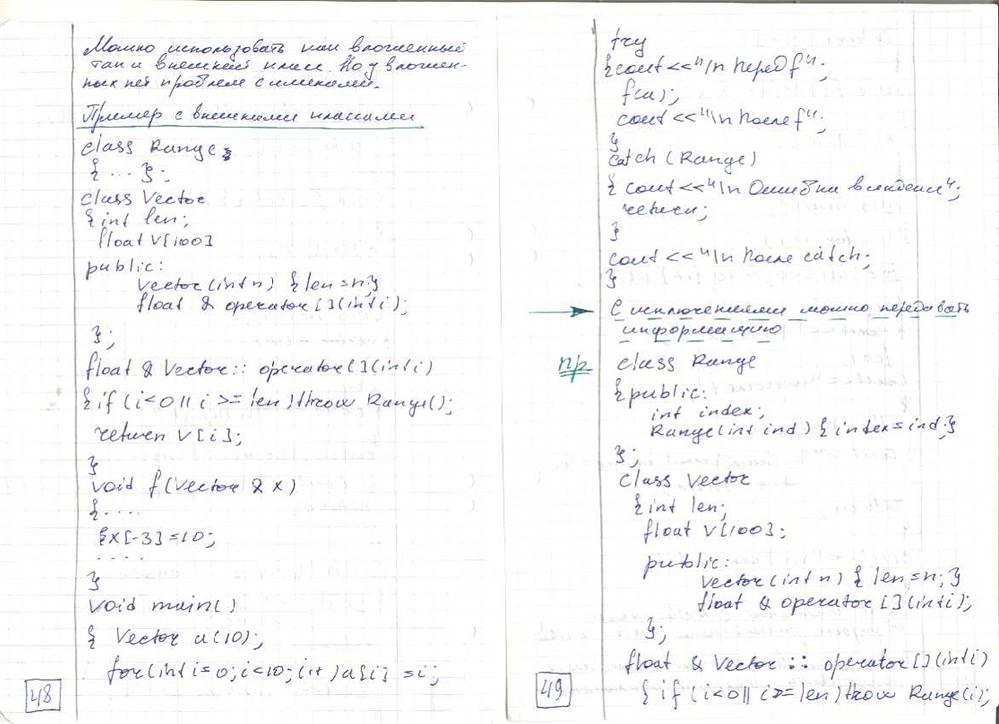 Можно использовать как вложенный
так и внешний класс. Но у вложен-
ных нет проблем с именами.
Пример с внешними классами
class Range
{ ... };
class Vector
{ int len;
float V[100]
public:
vector(int n) { len=n;}
float & operator [](int i);
};
float & Vector :: operator [](int i)
{ if (i<0 || i >= len) throw Range();
return V[i];
}
void f(Vector & x)
{ ....
x[-3]=10;
....
}
void main()
{ Vector a(10);
for(int i=0; i<10; i++) a[i] = i;
48
try
{ cout<<"\n Перед f";
f(a);
cout <<"\n После f";
}
catch (Range)
{ cout <<"\n Ошибка в индексе";
return;
}
cout <<"\n После catch;
}
С исключениями можно передавать
информацию
пр
class Range
{ public:
int index;
Range(int ind) { index=ind;}
};
class Vector
{ int len;
float V[100];
public:
vector(int n) { len=n; }
float & operator [](int i);
};
float & Vector :: operator [](int i)
{ if (i<0 || i>= len) throw Range(i);
49